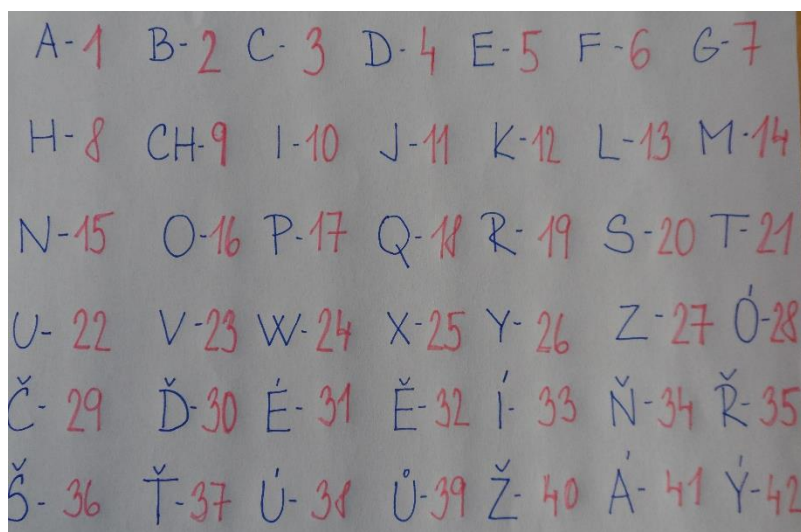 A-1 B-2 C-3 D-4 E-5 F-6 G-7
H-8 CH-9 I-10 J-11 K-12 L-13 M-14
N-15 O-16 P-17 Q-18 R-19 S-20 T-21
U-22 V-23 W-24 X-25 Y-26 Z-27 Ó-28
Č-29 Ď-30 É-31 Ě-32 Í-33 Ň-34 Ř-35
Š-36 Ť-37 Ú-38 Ů-39 Ž-40 Á-41 Ý-42